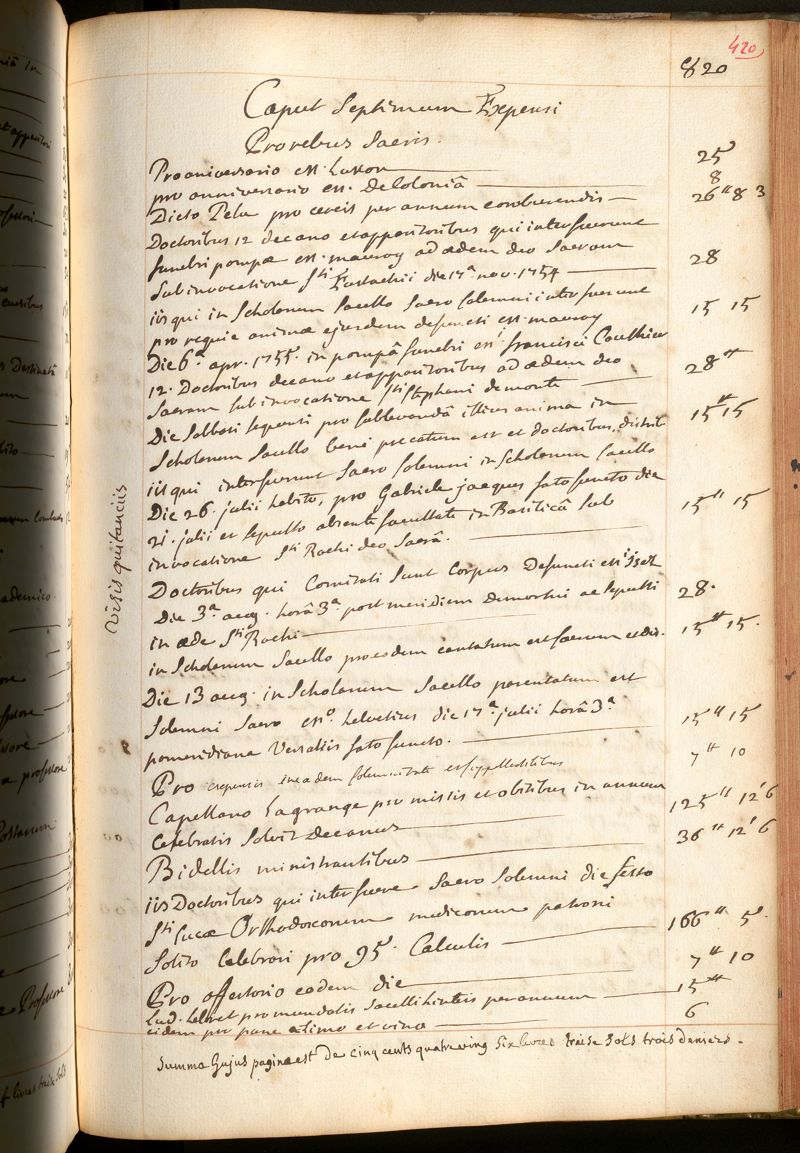 420
820
Caput Septimum Expensi
Pro rebus Sacris.
Pro aniversario mri. Luxon 25
pro anniversario mri. De Coloniâ 8
Dicto Pelu pro cereis per annum comburendis 26 ʺ 8 3
Doctoribus 12 decano et apparitoribus qui interfuerunt
funebri pompæ mri. mauroy ad ædem deo Sacram
Sub invocatione Sti Eustachii die 17ª nov. 1754 28
iis qui in Scholarum Sacello Sacro Solemni interfuerunt
pro requie animæ ejusdem defuncti mri. mauroy 15 15
Die 6ª apr. 1755. in pompâ funebri mri francisci Couthier
12. Doctoribus decano et apparitoribus ad ædem deo
Sacram sub invocatione Sti Stephani de monte 28 ʺ
Die Sabbati sequenti pro sublevandâ illius anima in
Scholarum Sacello bene precatum est et doctoribus distrib. 15 ʺ 15
iis qui interfuerunt Sacro Solemni in Scholarum Sacello
Die 26. julii habito, pro Gabriele jacques fato functo die
21. julii et sepulto absente facultate in Basilicâ Sub
invocatione Sti Rochi deo Sacrâ. 15 ʺ 15
Doctoribus qui Comitati Sunt Corpus Defuncti mri
Die 3ª aug. horâ 3ª post meridiem demortui ac Sepulti
in æde Sti Rochi 28.
in Scholarum Sacello pro eodem cantatum est sacrum et dis. 15 ʺ 15.
Die 13 aug. in Scholarum Sacello parentatum est
Solemni Sacro mro. helvetius die 17ª. julii horâ 3ª
pomeridiana Versaliis fato functo. 15 ʺ 15
Pro expensis in eadem Solemnitate 7 ʺ 10
Capellano Lagrange pro missis et obitibus in annum
Celebratis Solvit Decanus 125 ʺ 12ˢ 6
Bidellis ministrantibus 36 ʺ 12ˢ 6
iis Doctoribus qui interfuere Sacro Solemni die festo
Sti Lucæ Orthodoxorum medicorum patroni
Solito Celebrari pro 95. Calculis 166 ʺ 5.
Pro offertorio eodem die 7 ʺ 10
Lud. pro mundatis Sacelli linteis per annum 15 ʺ
eidem pro pane azimo et vino 6
Summa hujus paginæ est De cinq cents quatreving Six livres treise Sols trois deniers.
Visis quitanciis